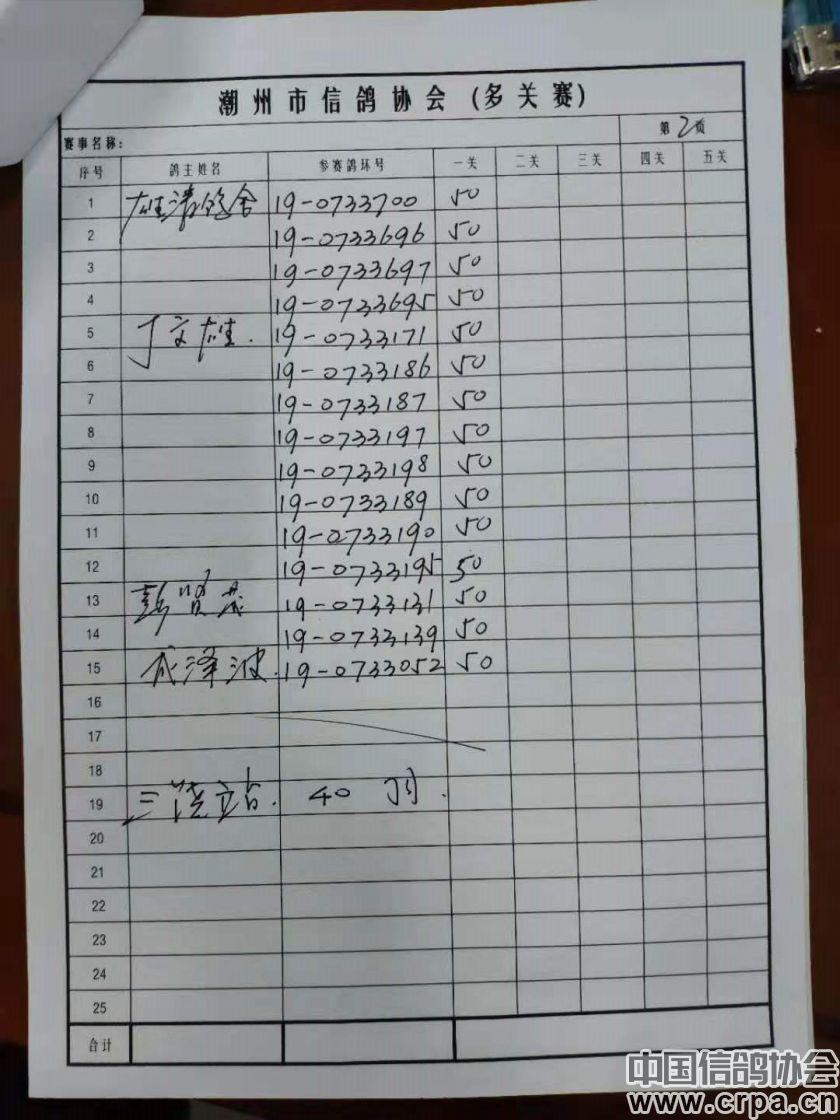 潮州市信鸽协会(多关赛)
赛事名称: 第2页
序号 鸽主姓名 参赛鸽环号 一关 二关 三关 四关 五关
1 雄清鸽舍 19-0733700 50
2 19-0733696 50
3 19-0733697 50
4 19-0733695 50
5 丁文雄. 19-0733171 50
6 19-0733186 50
7 19-0733187 50
8 19-0733197 50
9 19-0733198 50
10 19-0733189 50
11 19-0733190 50
12 19-0733195 50
13 彭贤 19-0733131 50
14 19-0733139 50
15 泽波. 19-0733052 50
16
17
18
19 三饶站. 40 羽.
20
21
22
23
24
25
合计
中国信鸽协会
www.crpa.cn